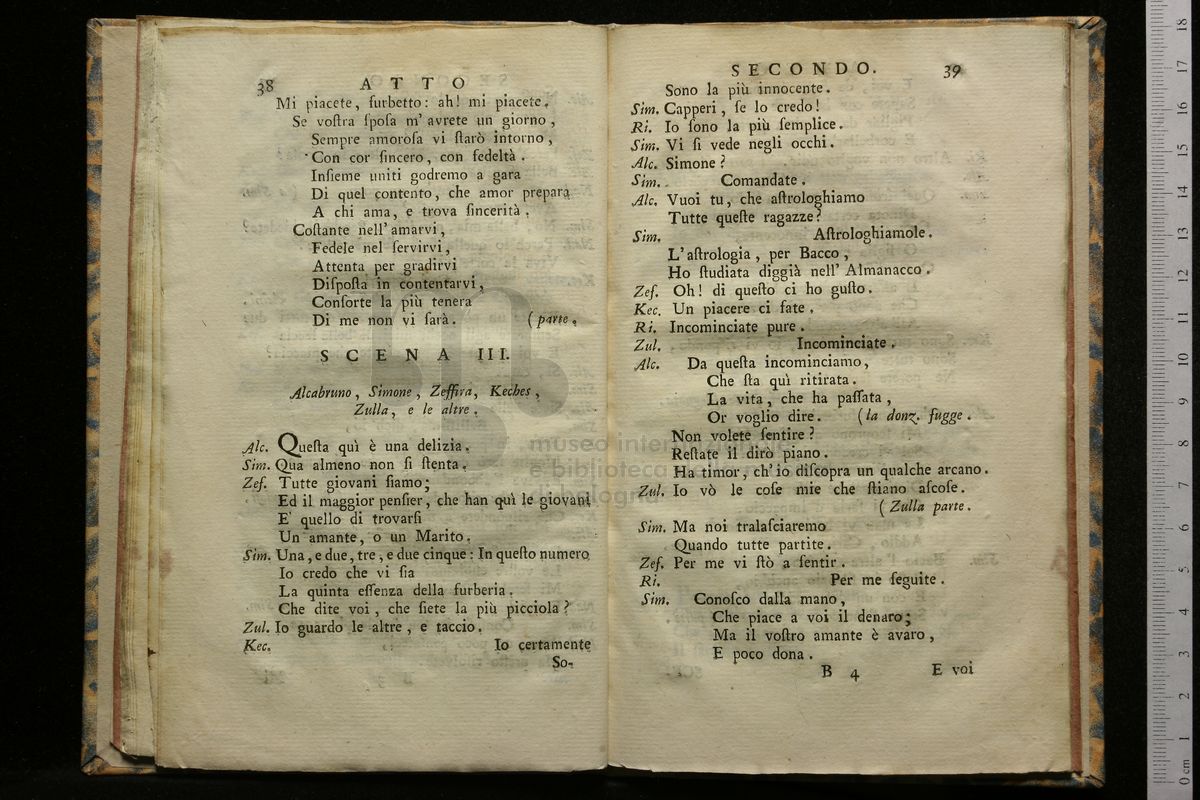 38 ATTO
Mi piacete, furbetto: ah! mi piacete.
Se voſtra ſpoſa m' avrete un giorno,
Sempre amoroſa vi ſtarò intorno,
Con cor ſincero, con fedeltà.
Inſieme uniti godremo a gara
Di quel contento, che amor prepara
A chi ama, e trova ſincerità.
Coſtante nell' amarvi,
Fedele nel ſervirvi,
Attenta per gradirvi
Diſpoſta in contentarvi,
Conſorte la più tenera
Di me non vi ſarà. (parte.
SCENA III.
Alcabruno, Simone, Zeffira, Keches,
Zulla, e le altre.
Alc. Queſta quì è una delizia.
Sim. Qua almeno non ſi ſtenta.
Zef. Tutte giovani ſiamo;
Ed il maggior penſier, che han quì le giovani
E' quello di trovarſi
Un amante, o un Marito.
Sim. Una, e due, tre, e due cinque: In queſto numero
Io credo che vi ſia
La quinta eſſenza della furberia.
Che dite voi, che ſiete la più picciola?
Zul. Io guardo le altre, e taccio.
Kec. Io certamente
So-
SECONDO. 39
Sono la più innocente.
Sim. Capperi, ſe lo credo!
Ri. Io ſono la più ſemplice.
Sim. Vi ſi vede negli occhi.
Alc. Simone?
Sim. Comandate.
Alc. Vuoi tu, che aſtrologhiamo
Tutte queſte ragazze?
Sim. Aſtrologhiamole.
L' aſtrologia, per Bacco,
Ho ſtudiata diggià nell' Almanacco.
Zef. Oh! di queſto ci ho guſto.
Kec. Un piacere ci fate.
Ri. Incominciate pure.
Zul. Incominciate.
Alc. Da queſta incominciamo,
Che ſta quì ritirata.
La vita, che ha paſſata,
Or voglio dire. (la donz. fugge.
Non volete ſentire?
Reſtate il dirò piano.
Ha timor, ch' io diſcopra un qualche arcano.
Zul. Io vò le coſe mie che ſtiano aſcoſe.
(Zulla parte.
Sim. Ma noi tralaſciaremo
Quando tutte partite.
Zef. Per me vi ſtò a ſentir.
Ri. Per me ſeguite.
Sim. Conoſco dalla mano,
Che piace a voi il denaro;
Ma il voſtro amante è avaro,
E poco dona.
B 4 E voi
museo internazionale
e biblioteca della musica
di bologna
0 cm 1 2 3 4 5 6 7 8 9 10 11 12 13 14 15 16 17 18